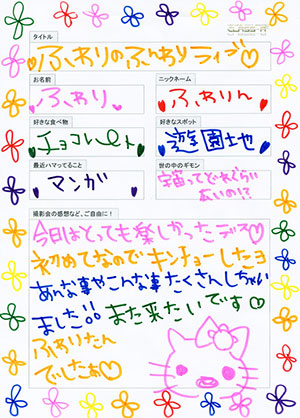 タイトル
ふありのふんわりライブ♡
お名前
ふあり
ニックネーム
ふありん
好きな食べ物
チョコレート
好きなスポット
遊園土地
最近ハマってること
マンガ
世の中のギモン
宇宙ってどれぐらい
広いの!?
撮影会の感想など、ご自由に！
今日はとっても楽しかったデス♡
初めてなのでキンチョーしたヨ
あんな事やこんな事たくさんしちゃい
ました!! また来たいです♡
ふありたん
でしたぁ♡